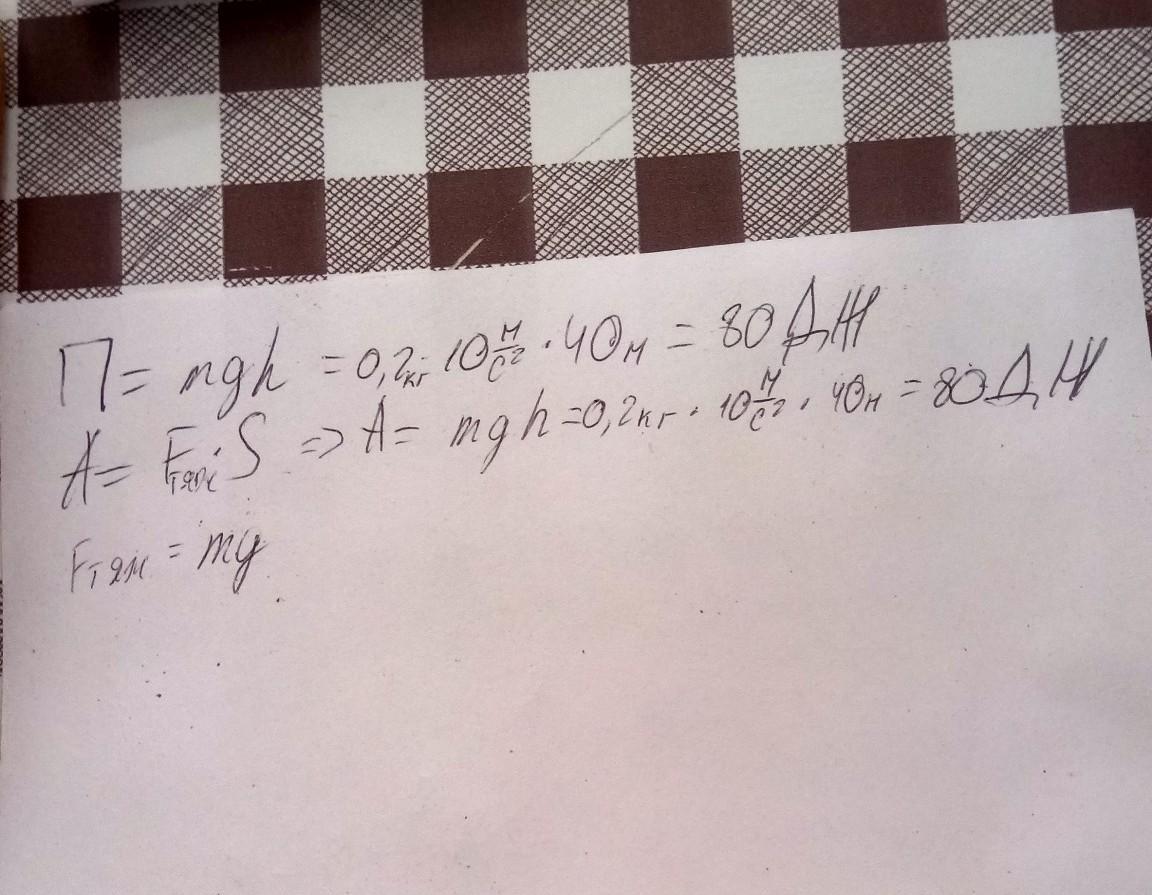 П = mgh = 0,2кг · 10 м/с² · 40м = 80 ДЖ
A = Fтяж · S => A = mgh = 0,2кг · 10 м/с² · 40м = 80 ДЖ
Fтяж = mg